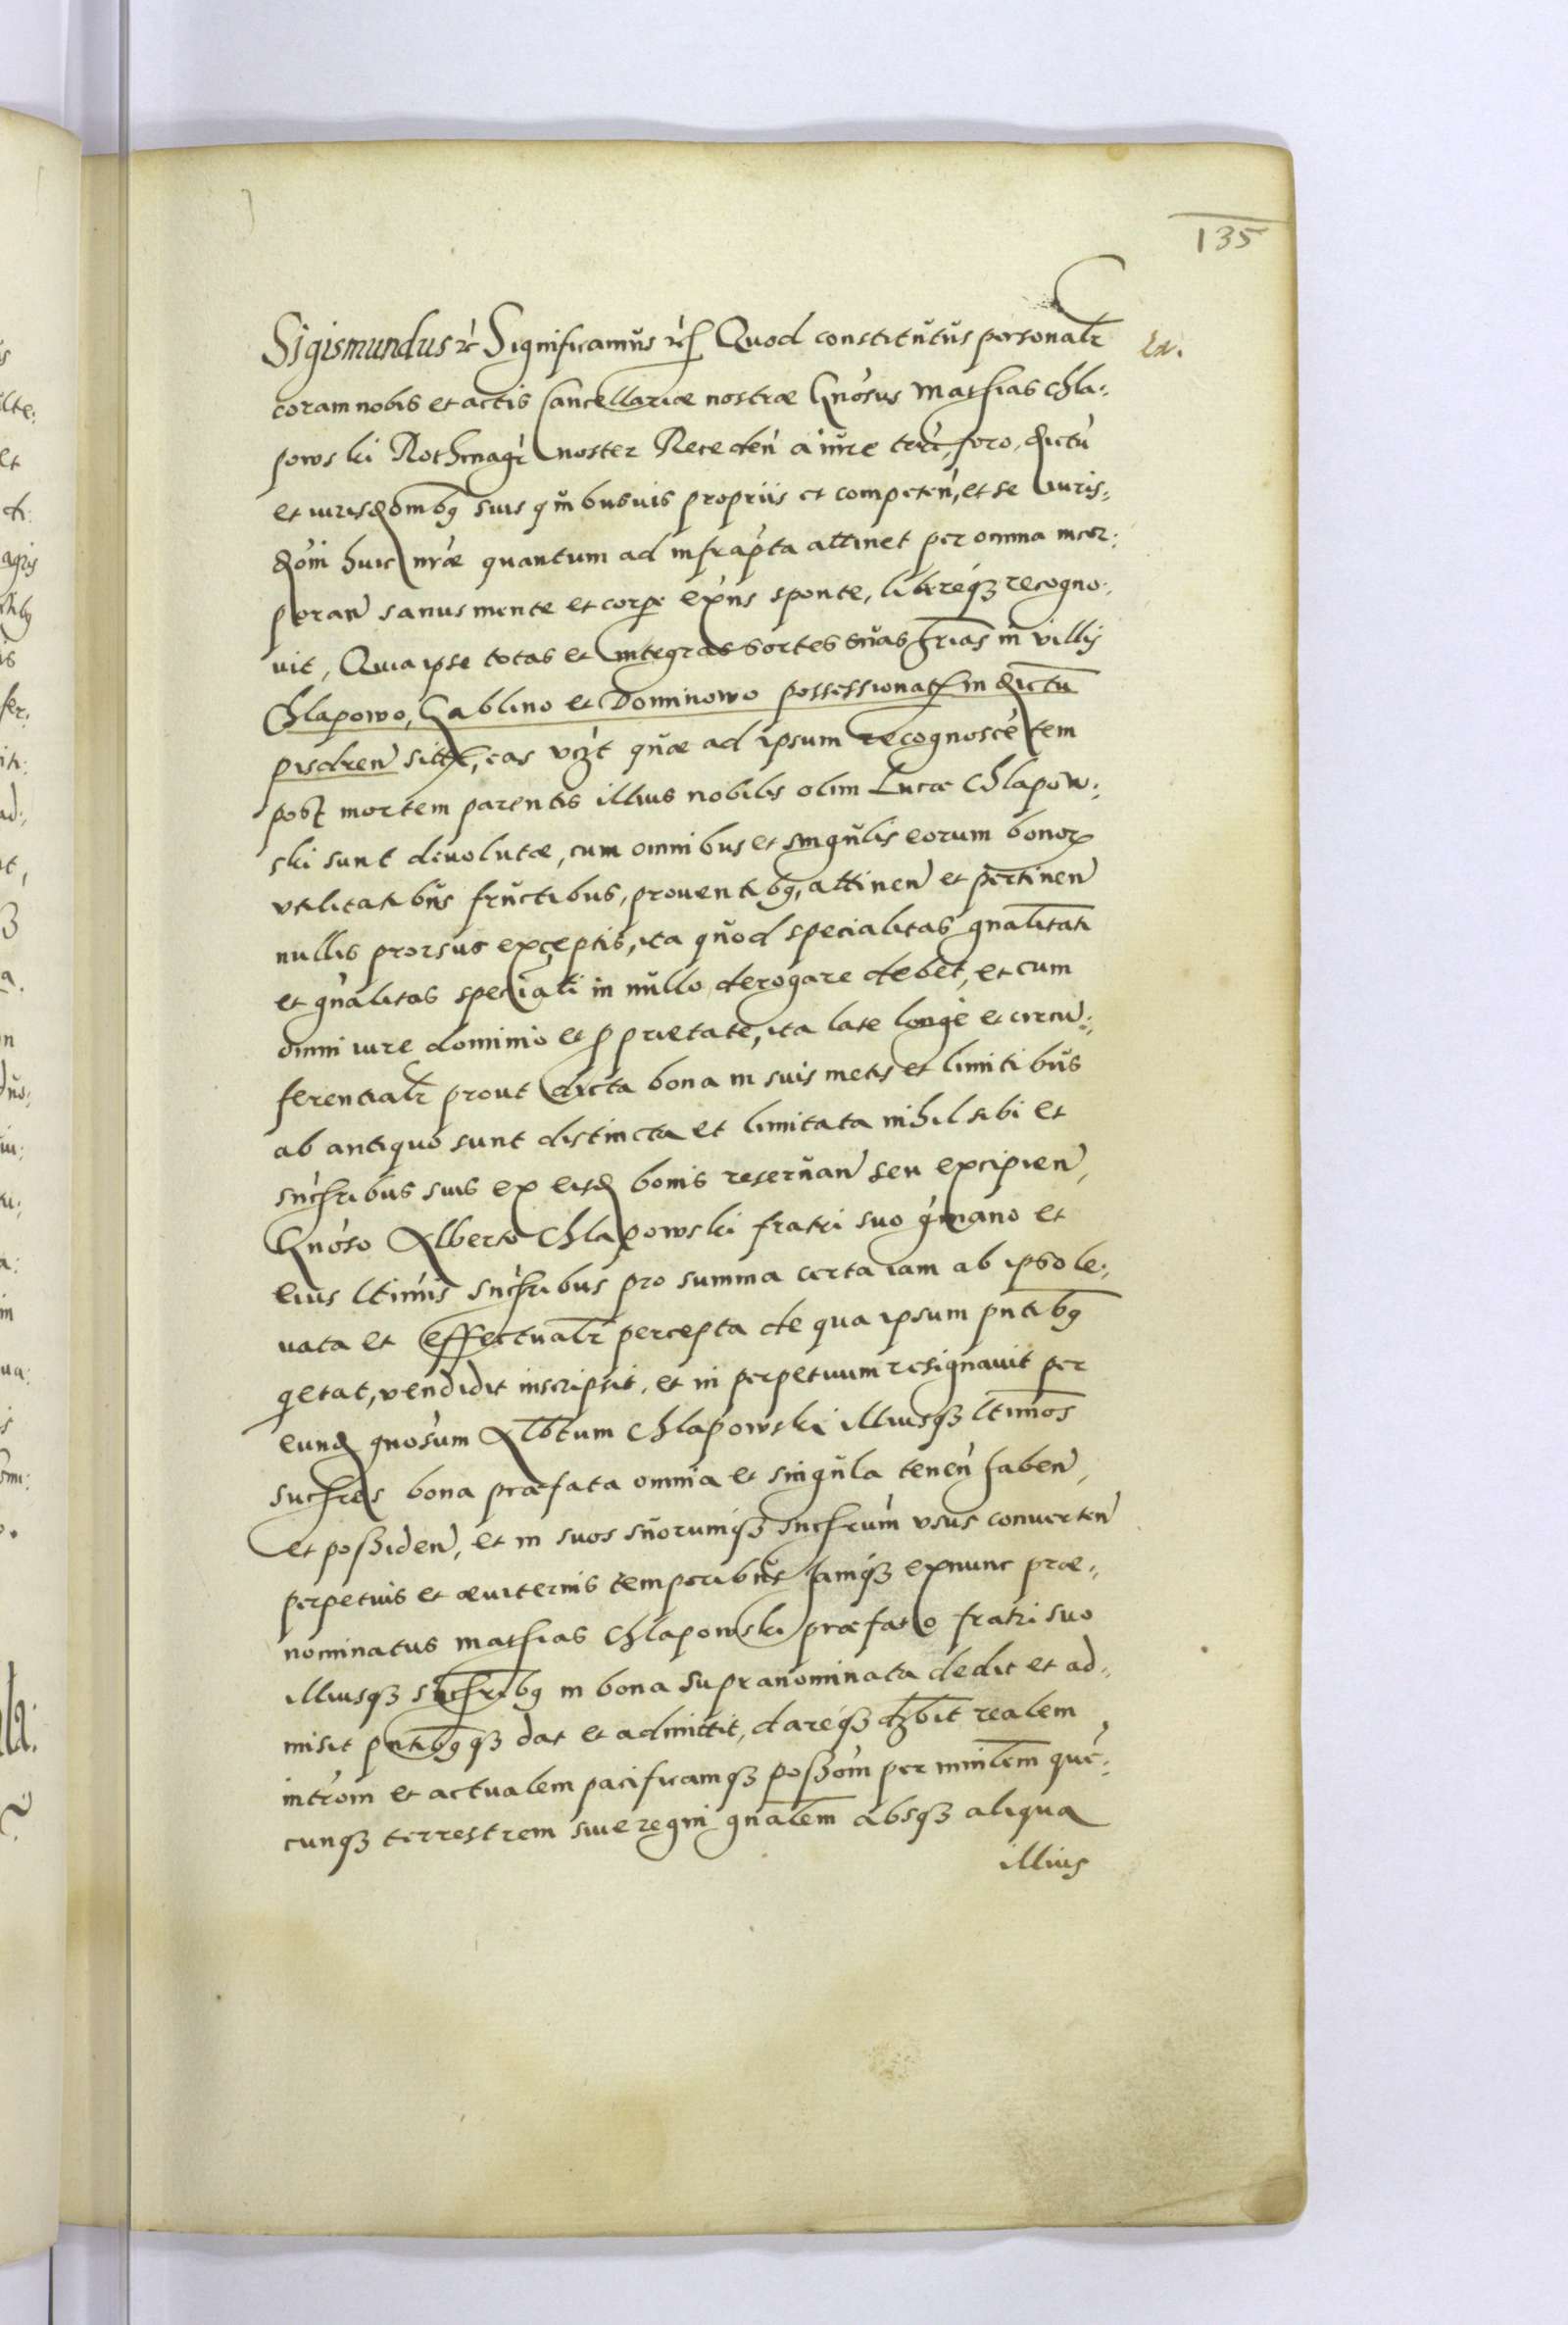 135
Sigismundus &c Significamus &c Quod constitutus personalr
Ex.
coram nobis et actis Cancellariæ nostræ Gnosus Mathias Chla:
powski Rothmagr noster Receden a iure terr, foro, dictu
et iurisdombq suis quibusuis propriis et competen, et se iuris:
dom huic nræ quantum ad infrapta attinet per omnia incor:
poran sanus mente et corpe exns sponte, libereq recogno:
uit, Quia ipse totas et integras sortes suas hrias in villis
Chlapowo, Gablino et Dominowo possessionat in dictu
pisdren sitt, eas vczt quæ ad ipsum recognoscetem
post mortem parentis illius nobilis olim Lucæ Chlapow:
ski sunt deuolutæ, cum omnibus et singulis eorum bonor
vtilitatibus fructibus, prouentibq, attinen et pertinen
nullis prorsus exceptis, ita quod specialitas gnalitati
et gnalitas speciali in nullo derogare debet, et cum
omni iure dominio et pprietate, ita late longe et circu:
ferentialr prout dicta bona in suis metis et limitibus
ab antiquo sunt distincta et limitata nihil sibi et
succribus suis ex eisd bonis reseruan seu excipien,
Gnoso Alberto Chlapowski fratri suo gmano et
eius ltimis succribus pro summa certa iam ab ipso le:
uata et effectualr percepta de qua ipsum pntibq
qetat, vendidit inscripsit, et in perpetuum resignauit per
eund gnosum Albtum Chlapowski illiusq ltimos
succres bona præfata omnia et singula tenen haben,
et possiden, et in suos suorumq succrum vsus conuerten
perpetuis et æuiternis temporibus Iamq exnunc præ:
nominatus Mathias Chlapowski præfato fratri suo
illiusq succribq in bona supranominata dedit et ad:
misit pntibqq dat et admittit, dareq dbit realem
introm et actualem pacificamq possom per minlem que:
cunq terrestrem siue regni gnalem absq aliqua
illius